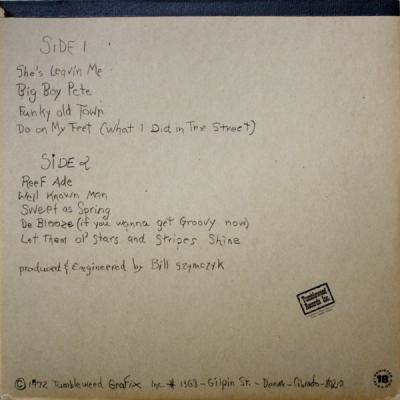 SIDE 1
She's Leavin Me
Big Boy Pete
Funky old Town
Do on My Feet (What I Did in The Street)
SIDE 2
ReeF Ade
Well Known Man
Sweet as Spring
De Blooze (if you wanna get Groovy now)
Let Them ol' Stars and Stripes Shine
produced & Engineered by Bill Szymczyk
Tumbleweed
Records Inc.
© 1972 Tumbleweed Grafix Inc # 1368 - Gilpin St. - Denver - Colorado
18